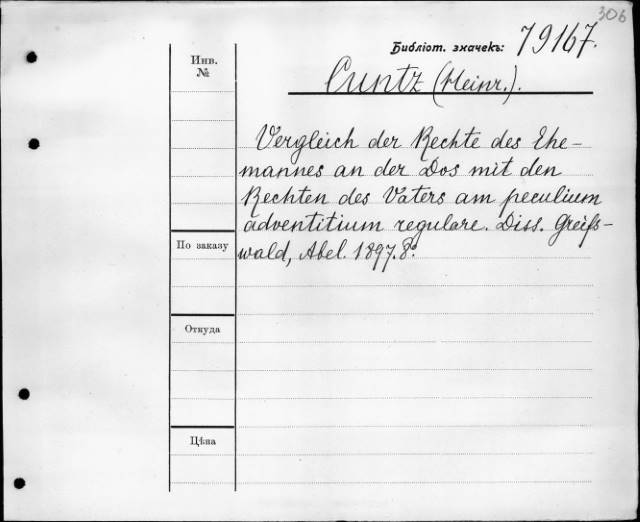 306
Библіот. значекъ: 79167.
Инв.
№
Cuntz (Heinr.).
Vergleich der Rechte des Ehe-
mannes an der Dos mit den
Rechten des Vaters am peculium
adventitium regulare. Diss. Greifs-
wald, Abel. 1897. 8º.
По заказу
Откуда
Цѣна